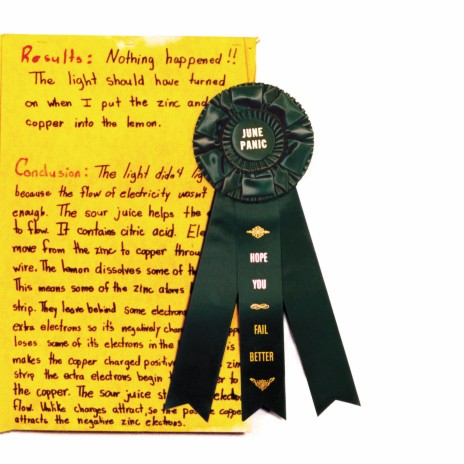 Results: Nothing happened!!
The light should have turned
on when I put the zinc and
copper into the lemon.
Conclusion: The light didn't
because the flow of electricity wasn't
enough. The sour juice helps the
to flow. It contains citric acid.
move from the zinc to copper
wire. The lemon dissolves some of the
This means some of the zinc atoms
strip. They leave behind some electrons
extra electrons so its negatively
loses some of its electrons in the
makes the copper charged
strip the extra electrons begin to
the copper. The sour juice
flow. Unlike charges attract, so the copper
attracts the negative zinc electrons.
JUNE
PANIC
HOPE
YOU
FAIL
BETTER